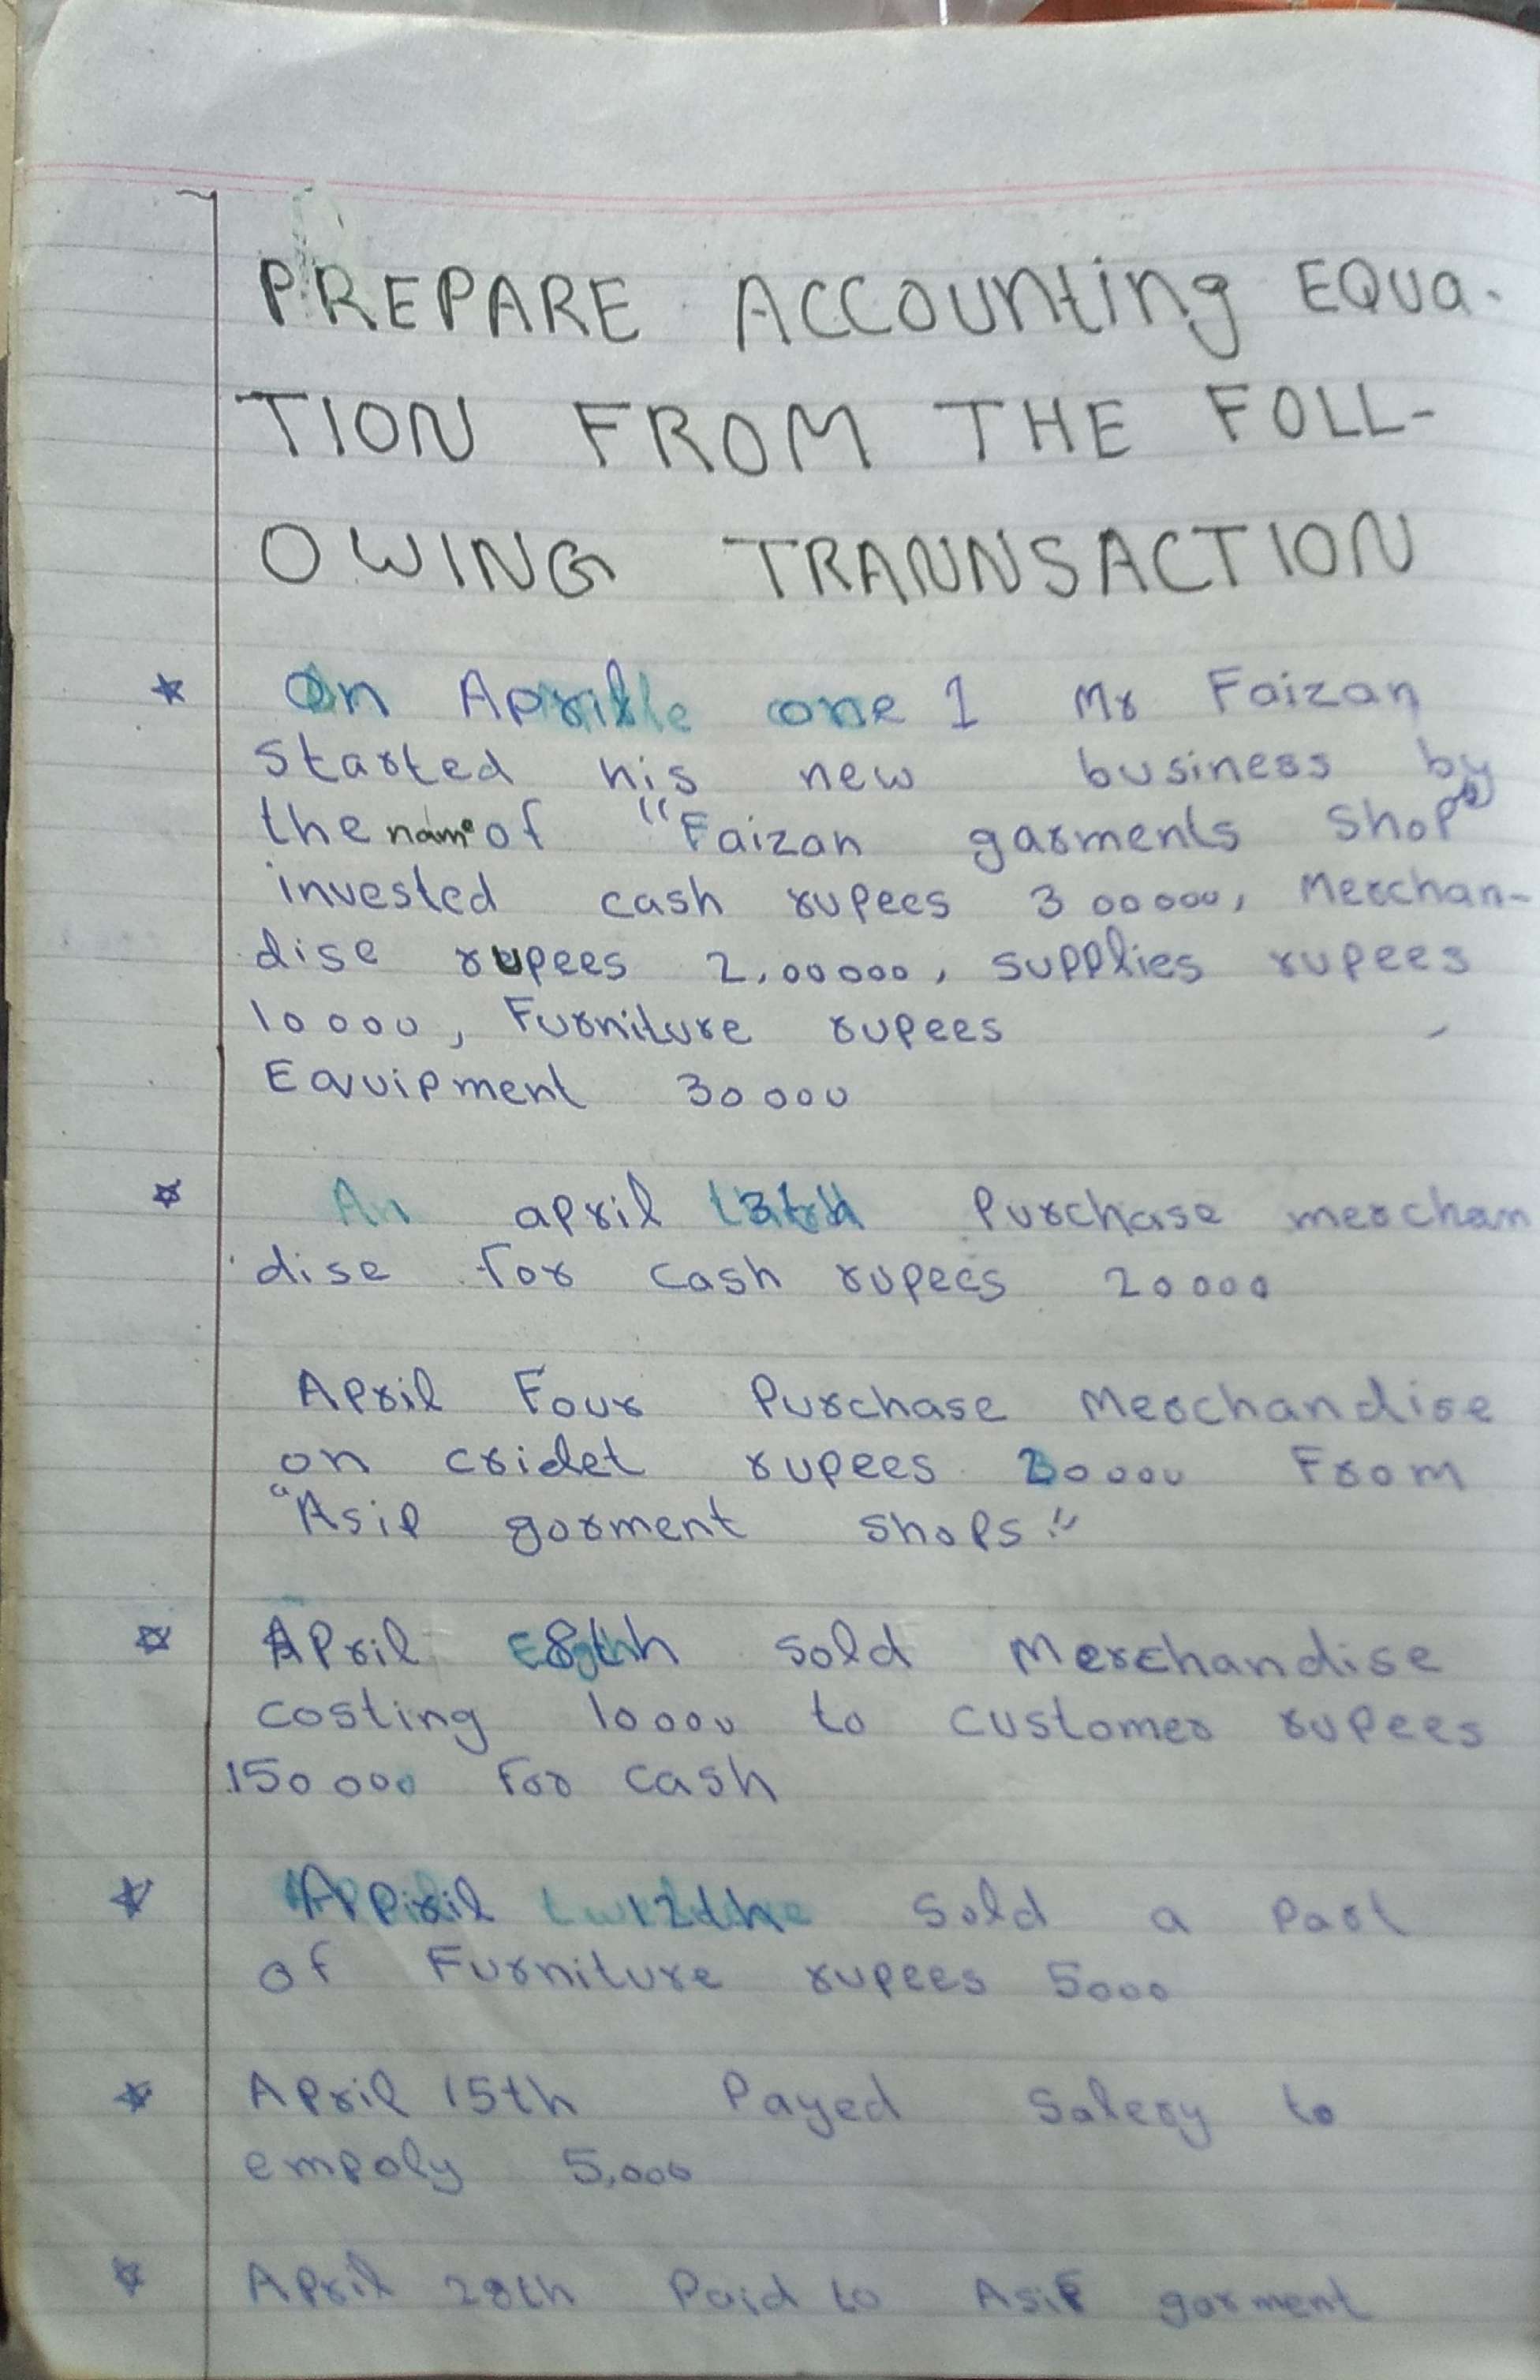 PREPARE ACCOUnting EQUA-
TION FROM THE FOLL-
OWING TRANNSACTION
On April one 1 Mr Faizan
started his new business by
the name of "Faizan garments shop"
invested cash rupees 3 00000, Merchan-
dise rupees 2,00000, supplies rupees
10000, Furniture rupees
Equipment 30000
An april Purchase merchan
dise for cash rupees 20000
April Four Purchase Merchandise
on cridet rupees From
"Asif garment shops"
April 8th sold Merchandise
costing 10000 to customer rupees
150000 for cash
April 12th sold a Part
of Furniture rupees 5000
April 15th Payed Salery to
empoly 5,000
April 28th Paid to Asif garment